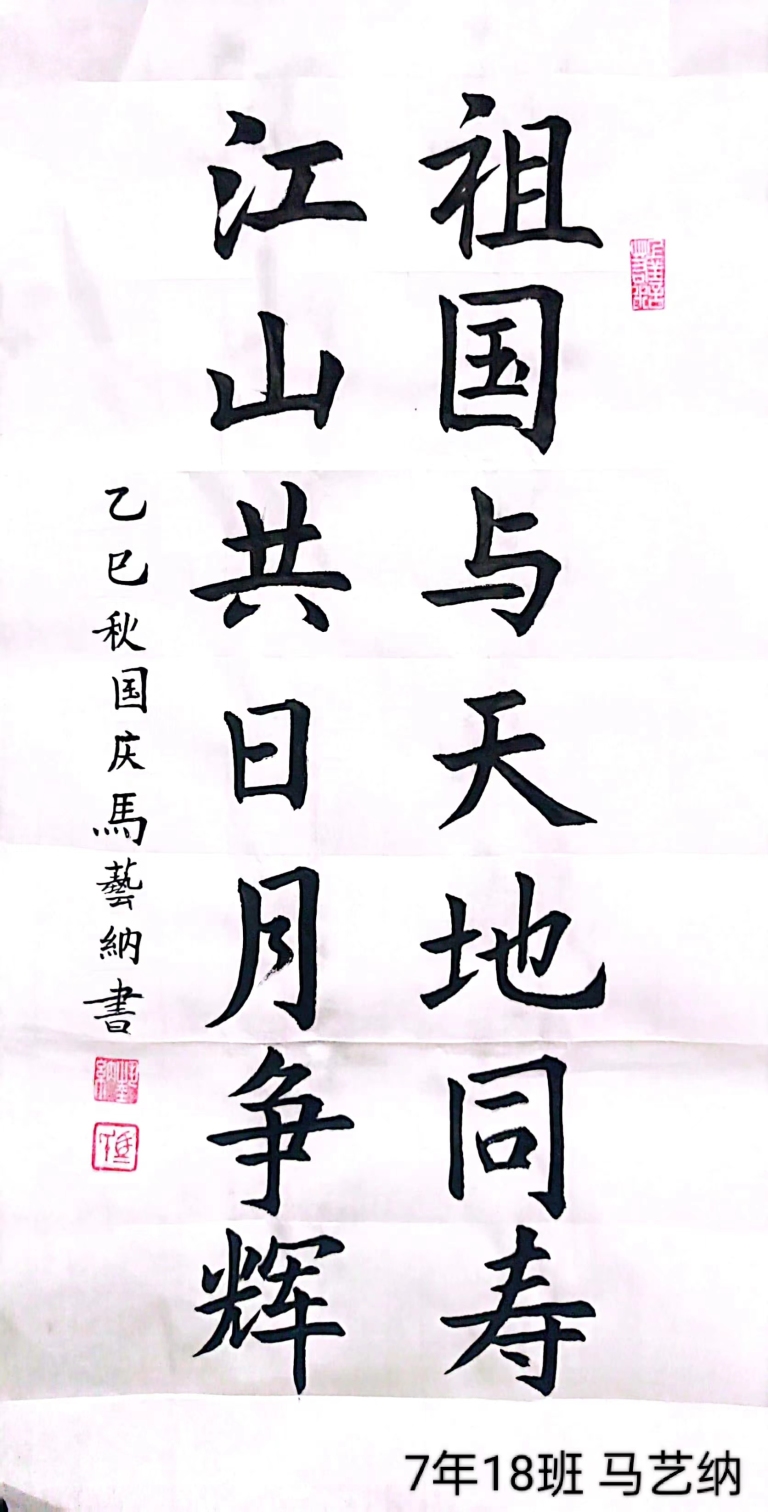 祖国与天地同寿
江山共日月争辉
乙巳秋国庆馬藝納書
7年18班 马艺纳